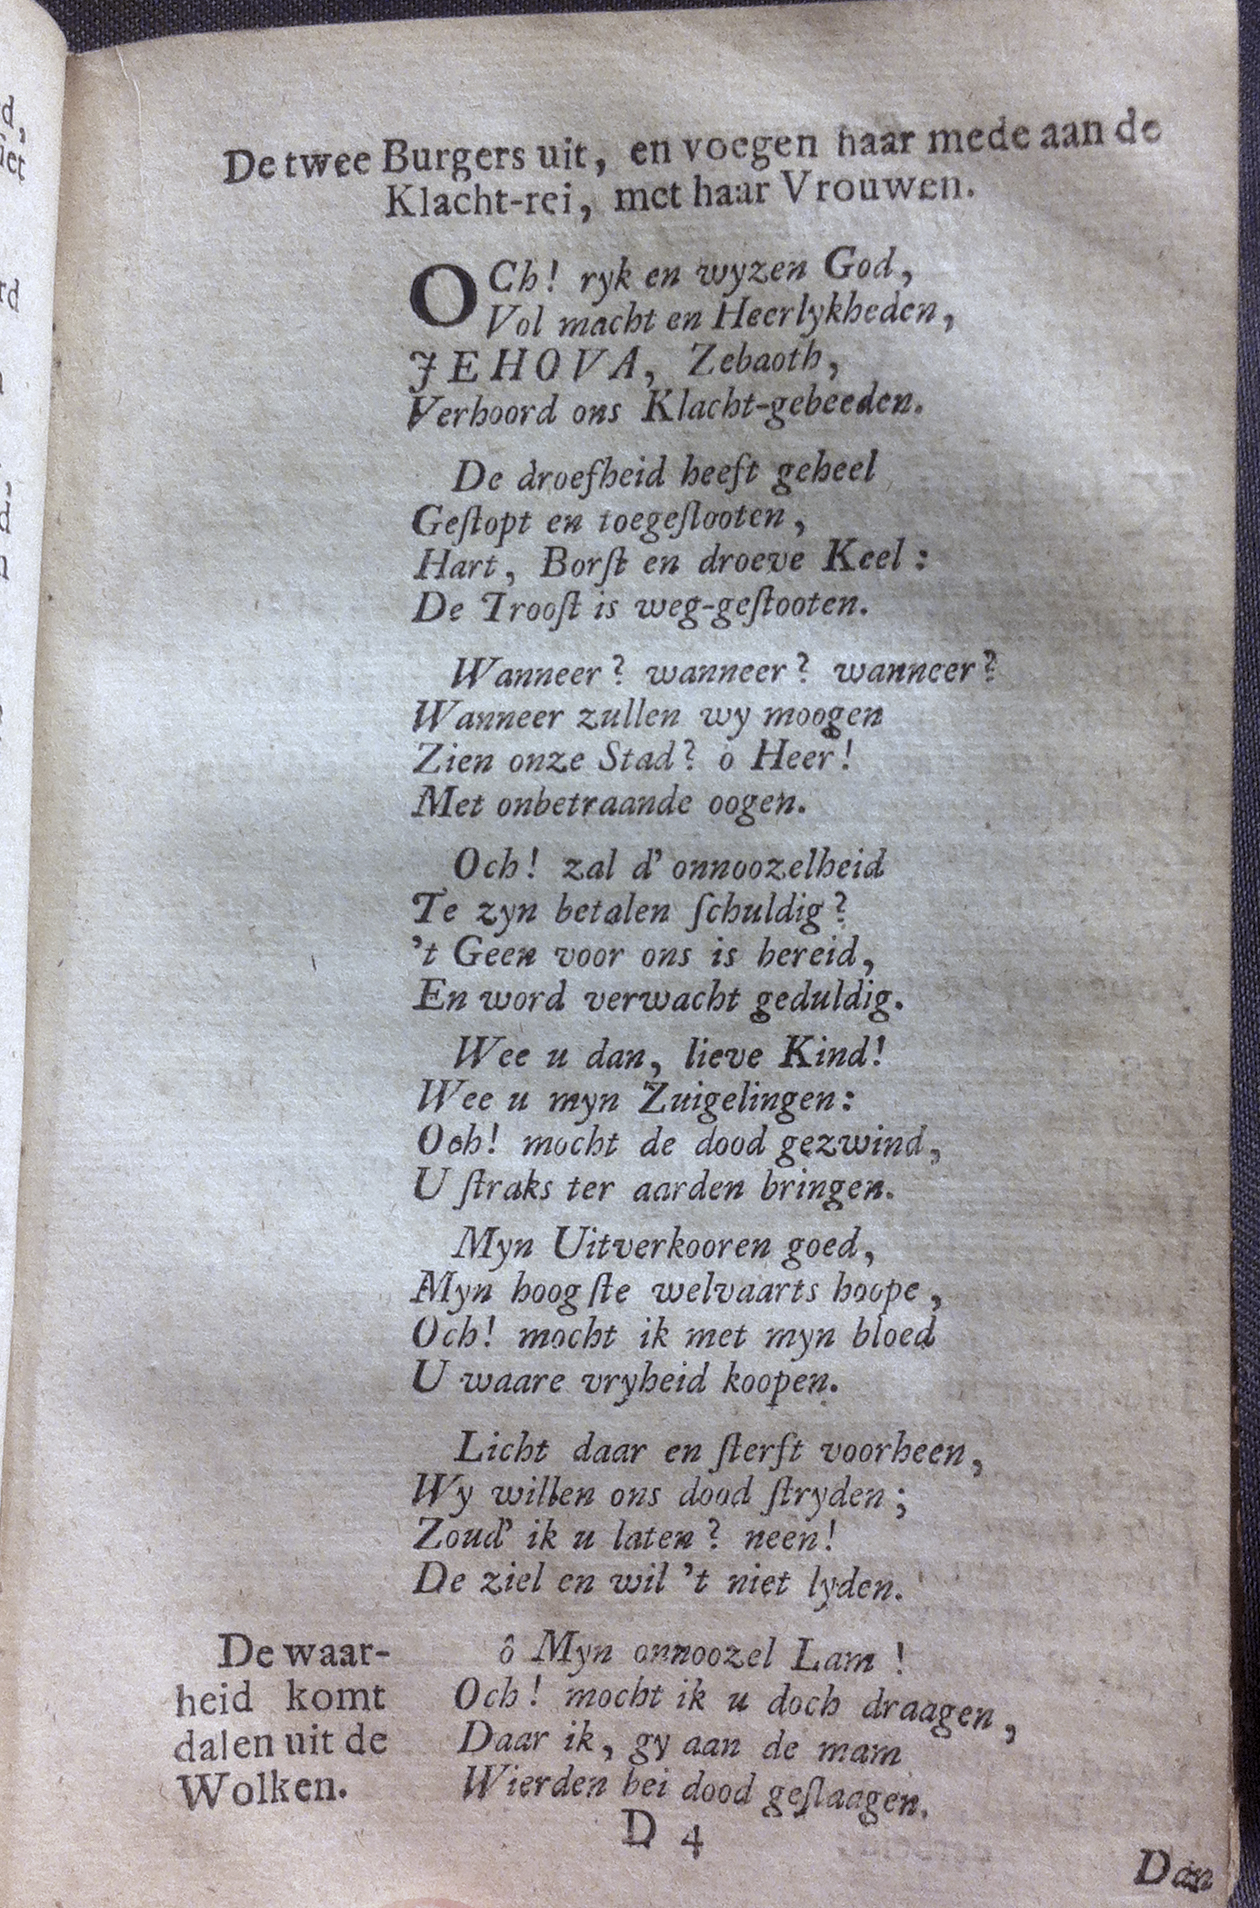 De twee Burgers uit, en voegen haar mede aan de
Klacht-rei, met haar Vrouwen.
OCh! ryk en wyzen God,
Vol macht en Heerlykheden,
JEHOVA, Zebaoth,
Verhoord ons Klacht-gebeeden.
De droefheid heeft geheel
Geſtopt en toegeſlooten,
Hart, Borſt en droeve Keel:
De Trooſt is weg-geſtooten.
Wanneer? wanneer? wanneer?
Wanneer zullen wy moogen
Zien onze Stad? ô Heer!
Met onbetraande oogen.
Och! zal d' onnoozelheid
Te zyn betalen ſchuldig?
't Geen voor ons is bereid,
En word verwacht geduldig.
Wee u dan, lieve Kind!
Wee u myn Zuigelingen:
Och! mocht de dood gezwind,
U ſtraks ter aarden bringen.
Myn Uitverkooren goed,
Myn hoogſte welvaarts hoope,
Och! mocht ik met myn bloed
U waare vryheid koopen.
Licht daar en ſterft voorheen,
Wy willen ons dood ſtryden;
Zoud' ik u laten? neen!
De ziel en wil 't niet lyden.
De waar-
heid komt
dalen uit de
Wolken.
ô Myn onnoozel Lam!
Och! mocht ik u doch draagen,
Daar ik, gy aan de mam
Wierden bei dood geſlaagen.
D 4
Dan